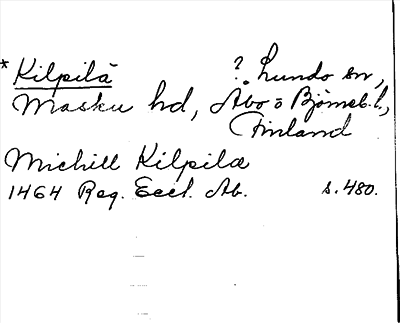 * Kilpilä ? Lundo sn,
Masku hd, Åbo o Björneb. l.,
Finland
Michill Kilpilæ
1464 Reg. Eccl. Ab. s. 480.